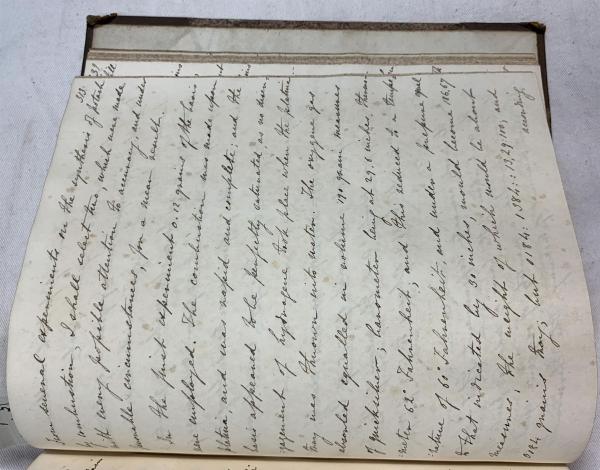 33
31
from several experiments on the synthesis of potash
by combustion, I shall select two, which were made
with every possible attention to accuracy and under
favorable circumstances, for a mean result.
In the first experiment 0.12 grains of the basis,
were employed. The combustion was made upon
platina, and was rapid and complete; and the
basis appeared to be perfectly saturated, as no disen-
gagement of hydrogene took place when the platina
tray was thrown into water. The oxygene gas
absorbed equalled in volume 190 grain measures
of quicksilver; barometer being at 29.6 inches, thermo-
meter 62° Fahrenheit; and this reduced to a tempe-
rature of 60° Fahrenheit, and under a pressure equal
to that indicated by 30 inches, would become 186.67
measures, the weight of which would be about
.0184 grains troy, but .0184 : .1384 :: 13,29 : 100; and
according